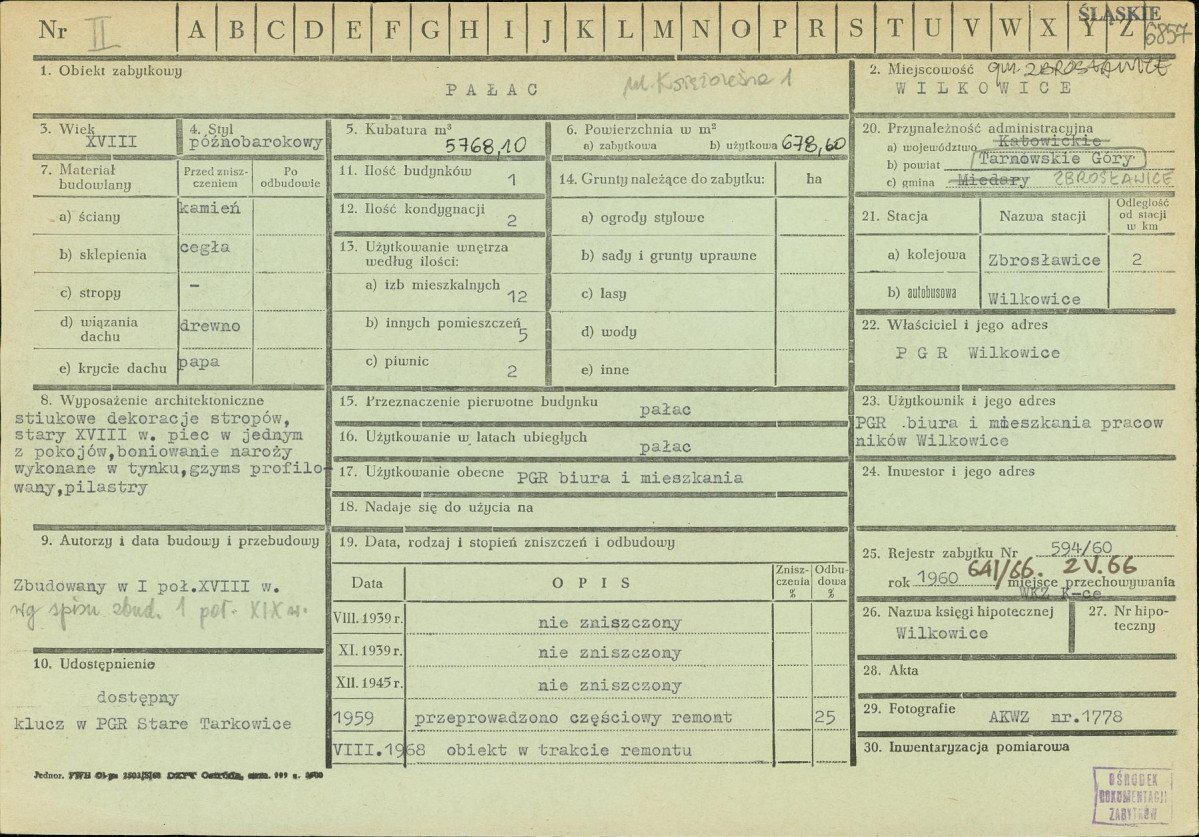 Nr II A B C D E F G H I J K L M N O P R S T U V W X Y Z
ŚLĄSKIE
6857
1. Obiekt zabytkowy
PAŁAC
ul. Księżoleśna 1
2. Miejscowość gm. ZBROSŁAWICE
WILKOWICE
3. Wiek
XVIII
4. Styl
późnobarokowy
5. Kubatura m³
5768,10
6. Powierzchnia w m²
a) zabytkowa b) użytkowa 678,60
20. Przynależność administracyjna
a) województwo Katowickie
b) powiat Tarnowskie Góry
c) gmina Miedary ZBROSŁAWICE
7. Materiał budowlany
Przed zniszczeniem
Po odbudowie
a) ściany kamień
b) sklepienia cegła
c) stropy -
d) wiązania dachu drewno
e) krycie dachu papa
11. Ilość budynków 1
12. Ilość kondygnacji 2
13. Użytkowanie wnętrza
według ilości:
a) izb mieszkalnych 12
b) innych pomieszczeń 5
c) piwnic 2
14. Grunty należące do zabytku: ha
a) ogrody stylowe
b) sady i grunty uprawne
c) lasy
d) wody
e) inne
21. Stacja Nazwa stacji Odległość od stacji w km
a) kolejowa Zbrosławice 2
b) autobusowa Wilkowice
22. Właściciel i jego adres
PGR Wilkowice
8. Wyposażenie architektoniczne
stiukowe dekoracje stropów,
stary XVIII w. piec w jednym
z pokojów,boniowanie naroży
wykonane w tynku,gzyms profilo-
wany,pilastry
15. Przeznaczenie pierwotne budynku pałac
16. Użytkowanie w latach ubiegłych pałac
17. Użytkowanie obecne PGR biura i mieszkania
18. Nadaje się do użycia na
23. Użytkownik i jego adres
PGR biura i mieszkania pracow
ników Wilkowice
24. Inwestor i jego adres
9. Autorzy i data budowy i przebudowy
Zbudowany w I poł.XVIII w.
wg spisu zbud. 1 poł. XIX w.
10. Udostępnienie
dostępny
klucz w PGR Stare Tarkowice
19. Data, rodzaj i stopień zniszczeń i odbudowy
Data OPIS Zniszczenia % Odbudowa %
VIII. 1939 r. nie zniszczony
XI. 1939 r. nie zniszczony
XII. 1945 r. nie zniszczony
1959 przeprowadzono częściowy remont 25
VIII.1968 obiekt w trakcie remontu
25. Rejestr zabytku Nr 594/60
641/66. 2 V. 66
rok 1960 miejsce przechowywania
WKZ K-ce
26. Nazwa księgi hipotecznej
Wilkowice
27. Nr hipoteczny
28. Akta
29. Fotografie AKWZ nr.1778
30. Inwentaryzacja pomiarowa
Jednor.
OŚRODEK
DOKUMENTACJI
ZABYTKÓW